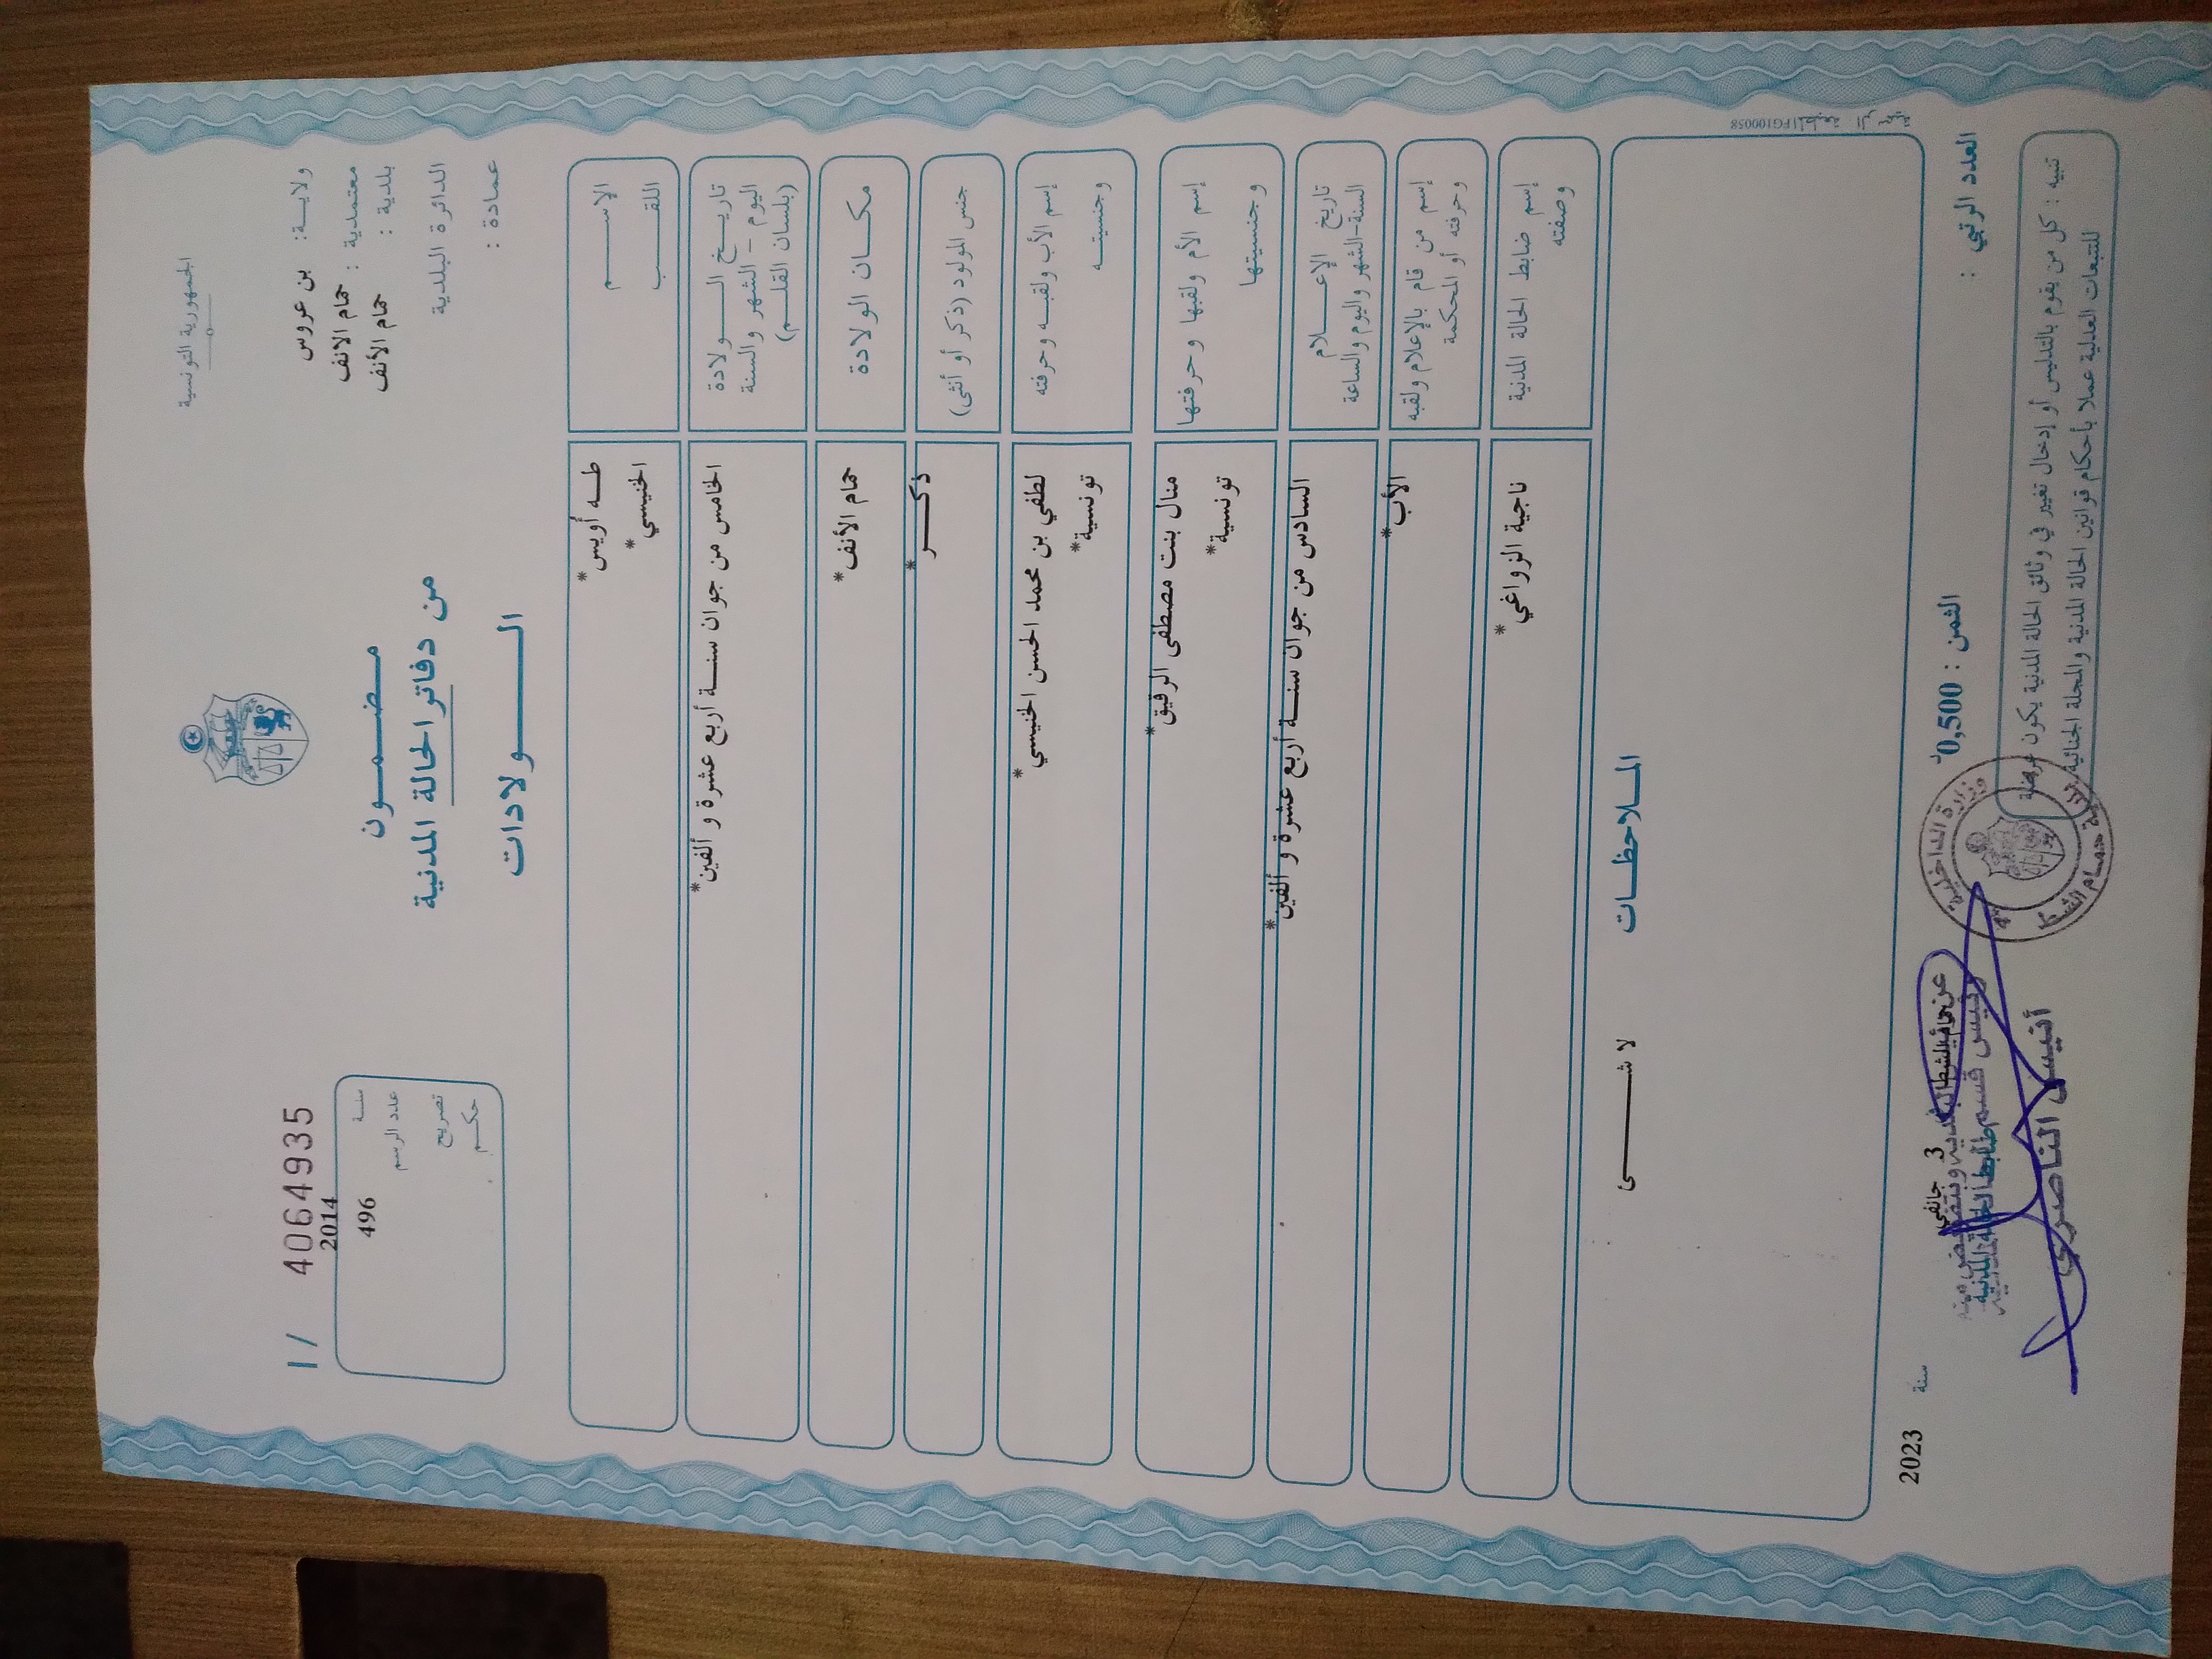 الجمهورية التونسية
ولاية: بن عروس
معتمدية : حمام الانف
بلدية : حمام الأنف
الدائرة البلدية
عمادة :
مضمون
من دفاتر الحالة المدنية
الولادات
I / 40664935
سنة 2014
عدد الرسم 496
تصريح
حكم
الإسم طه أويس*
اللقب الخنيسي*
تاريخ الولادة الخامس من جوان سنة أربع عشرة و ألفين*
اليوم - الشهر والسنة
(بلسان القلم)
مكان الولادة حمام الأنف*
جنس المولود (ذكر أو أنثى) ذكر*
إسم الأب ولقبه وحرفته لطفي بن محمد الحسن الخنيسي*
وجنسيته تونسية*
إسم الأم ولقبها وحرفتها منال بنت مصطفى الرقيق*
وجنسيتها تونسية*
تاريخ الإعلام السادس من جوان سنة أربع عشرة و ألفين*
السنة-الشهر واليوم والساعة
إسم من قام بالإعلام ولقبه الأب*
وحرفته أو المحكمة
إسم ضابط الحالة المدنية ناجية الزواغي*
وصفته
الملاحظات
لا شيء
المطبعة الرسمية FG100058
العدد الرتبي :
الثمن : 0,500د
3 جانفي سنة 2023
ضابط الحالة المدنية
أنيس الناصري
وزارة الداخلية
تنبيه : كل من يقوم بالتدليس أو إدخال تغيير في وثائق الحالة المدنية يكون عرضة
للتبعات العدلية عملا بأحكام قوانين الحالة المدنية والمجلة الجنائية